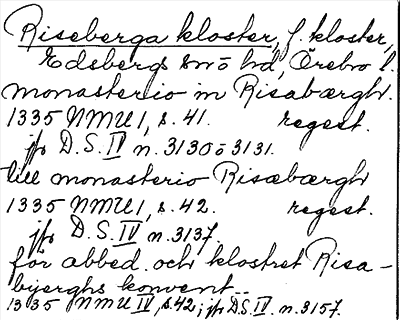 Riseberga kloster, f. kloster,
Edsbergs sn o hd, Örebro l.
monasterio in Risabærgh.
1335 NMU 1, s. 41. regest.
jfr D.S. IV n. 3130 o 3131.
till monasterio Risæbærgh
1335 NMU 1, s. 42. regest.
jfr D.S. IV n. 3137
för abbed. och klostret Risa-
bijerghs konvent..
1335 NMU IV, s. 42; jfr D.S. IV. n. 3157.